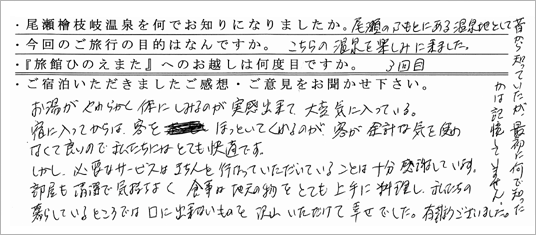 ・尾瀬檜枝岐温泉を何でお知りになりましたか。尾瀬のふもとにある温泉地として
昔から知っていたが、最初に何で知った
かは記憶にありません。
・今回のご旅行の目的はなんですか。こちらの温泉を楽しみに来ました。
・『旅館ひのえまた』へのお越しは何度目ですか。3回目
・ご宿泊いただきましたご感想・ご意見をお聞かせ下さい。
お湯がやわらかく体にしみるのが実感出来て、大変気に入っている。
宿に入ってからは、客をほっといてくれるのが、客が余計な気を使め
なくて良いので私たちにはとても快適です。
しかし、必要なサービスはきちんと行なっていただいていることは十分感謝しています。
部屋も清潔で気持よく、食事は地元の物をとても上手に料理し、私たちの
暮らしているところでは口に出来ないものを沢山いただけて幸せでした。有難うございました。